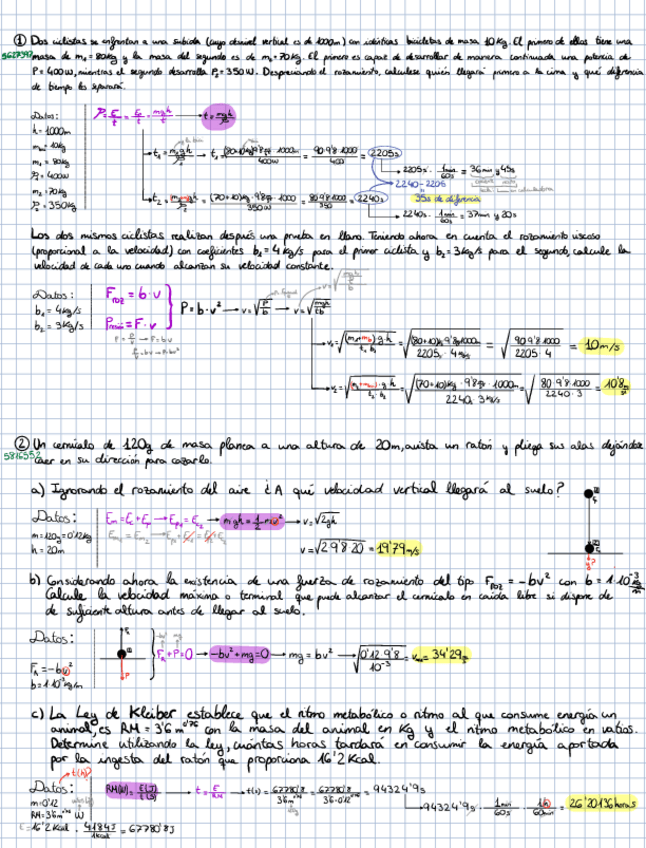 ① Dos ciclistas se enfrentan a una subida (cuyo desnivel vertical es de 1000m) con idénticas bicicletas de masa 10Kg. El primero de ellos tiene una
masa de m₁ = 80kg y la masa del segundo es de m₂ = 70kg. El primero es capaz de desarrollar de manera continuada una potencia de
P = 400W, mientras el segundo desarrolla P₂ = 350W. Despreciando el rozamiento, calcúlese quién llegará primero a la cima y qué diferencia
de tiempo los separará.
Datos:
h = 1000m
m_b = 10kg
m₁ = 80kg
P₁ = 400W
m₂ = 70kg
P₂ = 350W
P = E/t = E_p/t = mgh/t → t = mgh/P
t₁ = m₁gh/P → t₁ = (80+10)kg · 9'8 · 1000m / 400W = 90·9'8·1000 / 400 = 2205s
2205s · 1min/60s = 36min y 45s
2240 - 2205
35s de diferencia
t₂ = (70+10)kg · 9'8 · 1000 / 350W = 80·9'8·1000 / 350 = 2240s
2240s · 1min/60s = 37min y 20s
Los dos mismos ciclistas realizan después una prueba en llano. Teniendo ahora en cuenta el rozamiento viscoso
(proporcional a la velocidad) con coeficientes b₁ = 4kg/s para el primer ciclista y b₂ = 3kg/s para el segundo, calcule la
velocidad de cada uno cuando alcanzan su velocidad constante.
Datos:
b₁ = 4kg/s
b₂ = 3kg/s
F_roz = b · v
P = F · v
P = b·v² → v = √(P/b) → v = √(mgh/tb)
v₁ = √((m₁+m_b)gh / t₁·b₁) = √((80+10)kg 9'8 1000m / 2205s · 4kg/s) = √(90 9'8 1000 / 2205 · 4) = 10m/s
v₂ = √((m₂+m_b)·g·h / t₂·b₂) = √((70+10)kg · 9'8 · 1000m / 2240s · 3kg/s) = √(80·9'8·1000 / 2240·3) = 10'8 m/s
② Un cernícalo de 120g de masa planea a una altura de 20m, avista un ratón y pliega sus alas dejándose
caer en su dirección para cazarlo.
a) Ignorando el rozamiento del aire ¿A qué velocidad vertical llegará al suelo?
Datos:
m = 120g = 0'12kg
h = 20m
E_m = E_c + E_p → E_p₁ = E_c₂ → mgh = ½mv² → v = √2gh
v = √2·9'8·20 = 19'79 m/s
b) Considerando ahora la existencia de una fuerza de rozamiento del tipo F_roz = -bv² con b = 1·10⁻³ kg/m
Calcule la velocidad máxima o terminal que puede alcanzar el cernícalo en caída libre si dispone de
de suficiente altura antes de llegar al suelo.
Datos:
F_R = -bv²
b = 1·10⁻³ kg/m
F_R + P = 0 → -bv² + mg = 0 → mg = bv² → √(0'12·9'8 / 10⁻³) = 34'29
c) La Ley de Kleiber establece que el ritmo metabólico o ritmo al que consume energía un
animal, es RM = 3'6 m^0'75 con la masa del animal en Kg y el ritmo metabólico en vatios.
Determine utilizando la ley, cuántas horas tardará en consumir la energía aportada
por la ingesta del ratón que proporciona 16'2 Kcal.
Datos:
m = 0'12
RM = 3'6m^0'75 W
E = 16'2 Kcal · 4184J/1Kcal = 67780'8J
RM(W) = E(J)/t(s) → t = E/RM → t(s) = 67780'8 / 3'6m^0'75 = 67780'8 / 3'6·0'12^0'75 = 94324'9s
94324'9s · 1min/60s · 1h/60min = 26'20136 horas